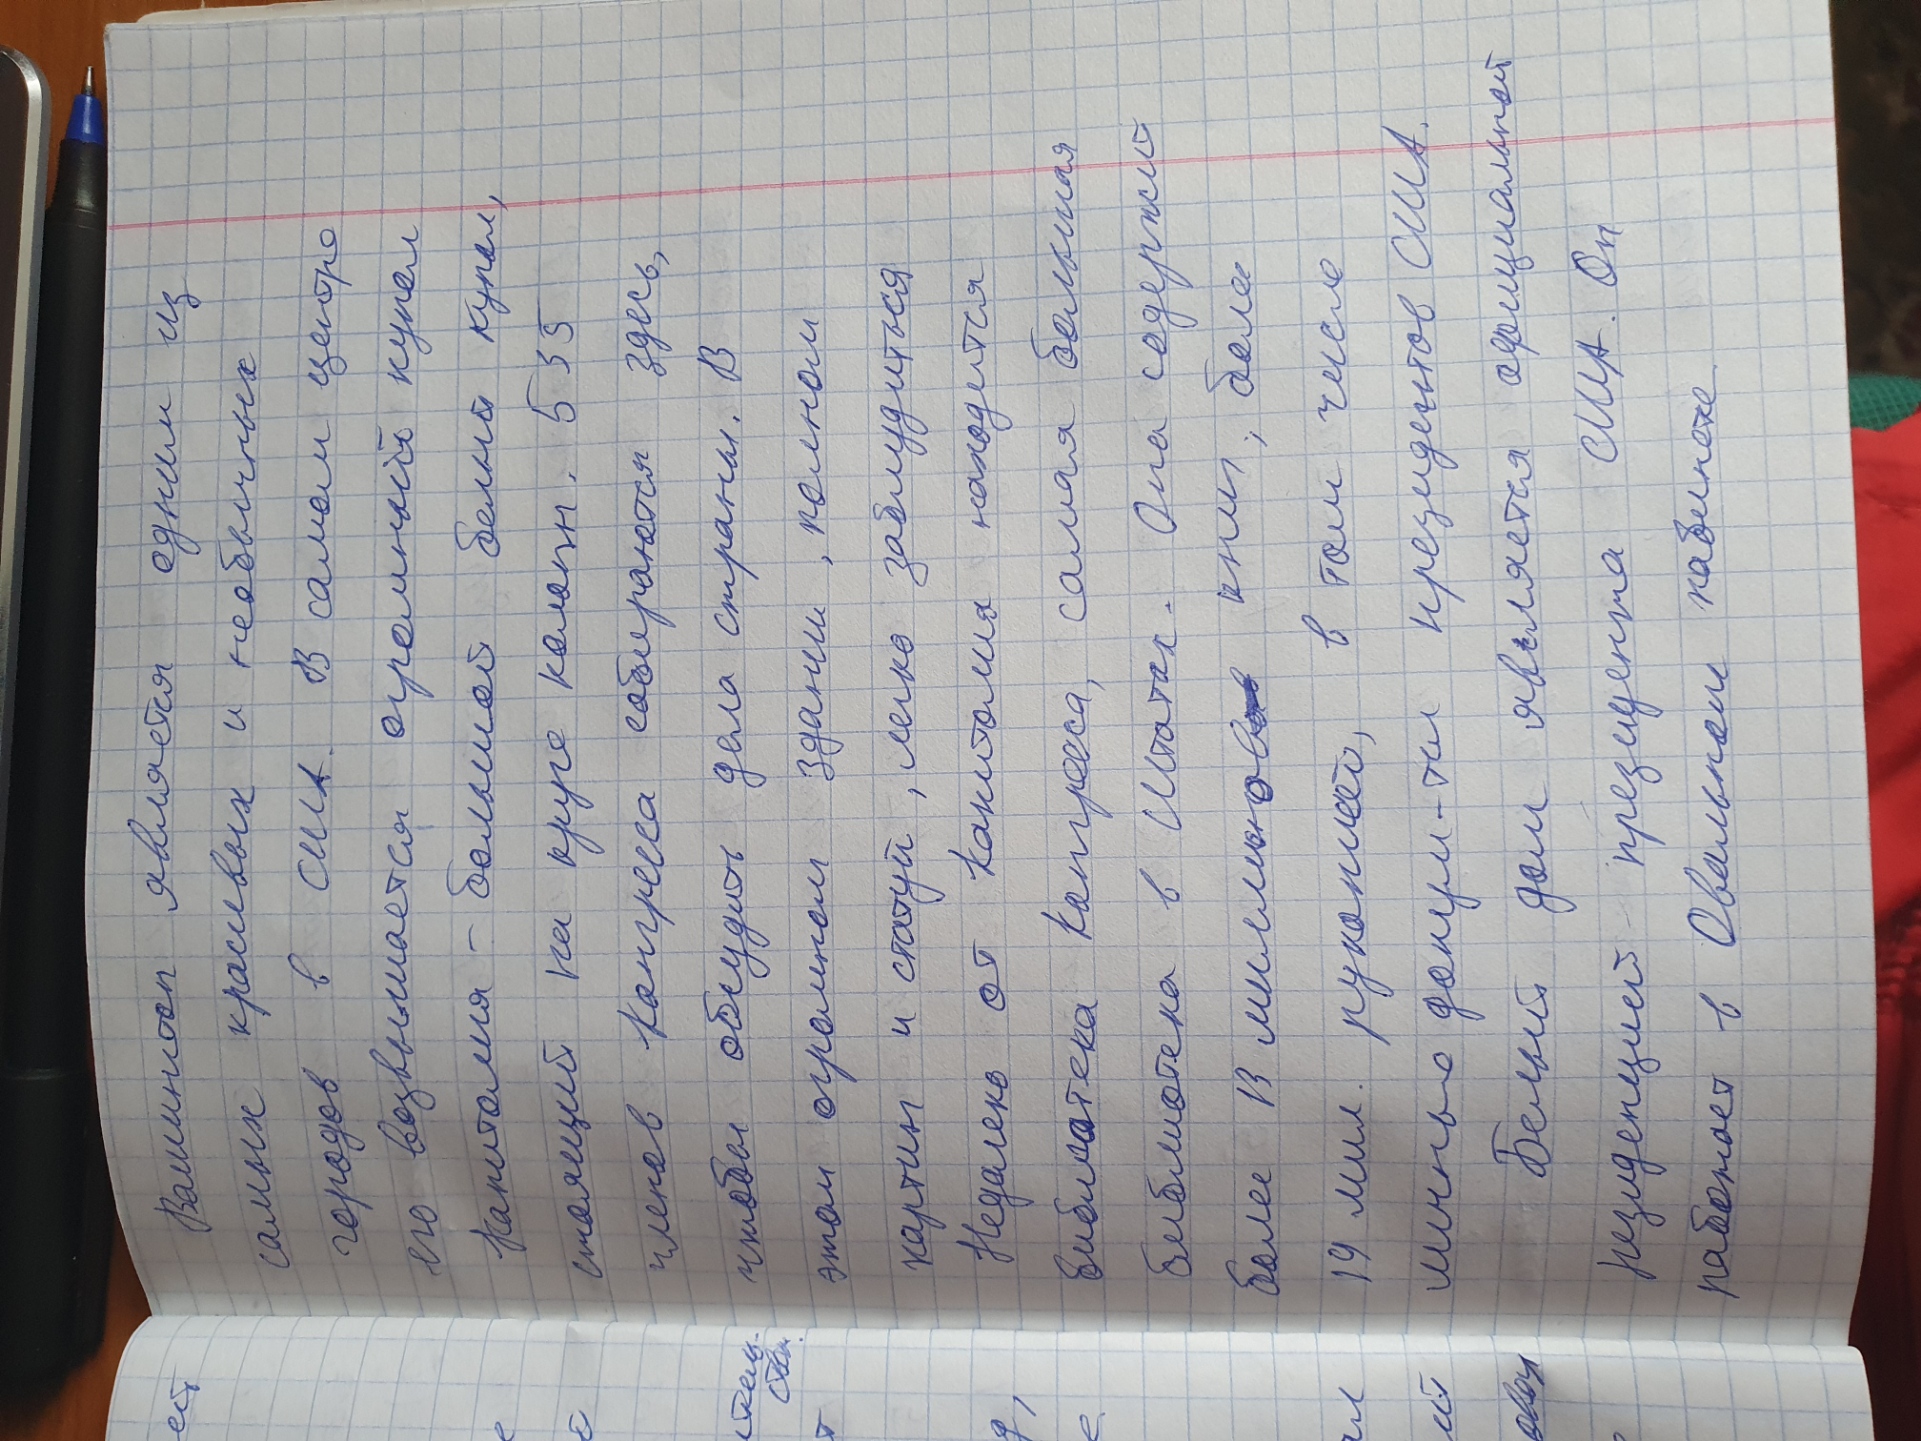 Вашингтон является одним из
самых красивых и необычных
городов в США. В самом центре
его возвышается огромный купол
Капитолия - большой белый купол,
стоящий на круге колонн. 535
членов Конгресса собираются здесь,
чтобы обсудить дела страны. В
этом огромном здании, полном
картин и статуй, легко заблудиться
Недалеко от Капитолия находится
библиотека Конгресса, самая большая
библиотека в Штатах. Она содержит
более 13 миллионов книг, более
19 мил. рукописей, в том числе
личные докум-ты президентов США.
Белый дом является официальной
резиденцией президента США. Он
работает в Овальном кабинете